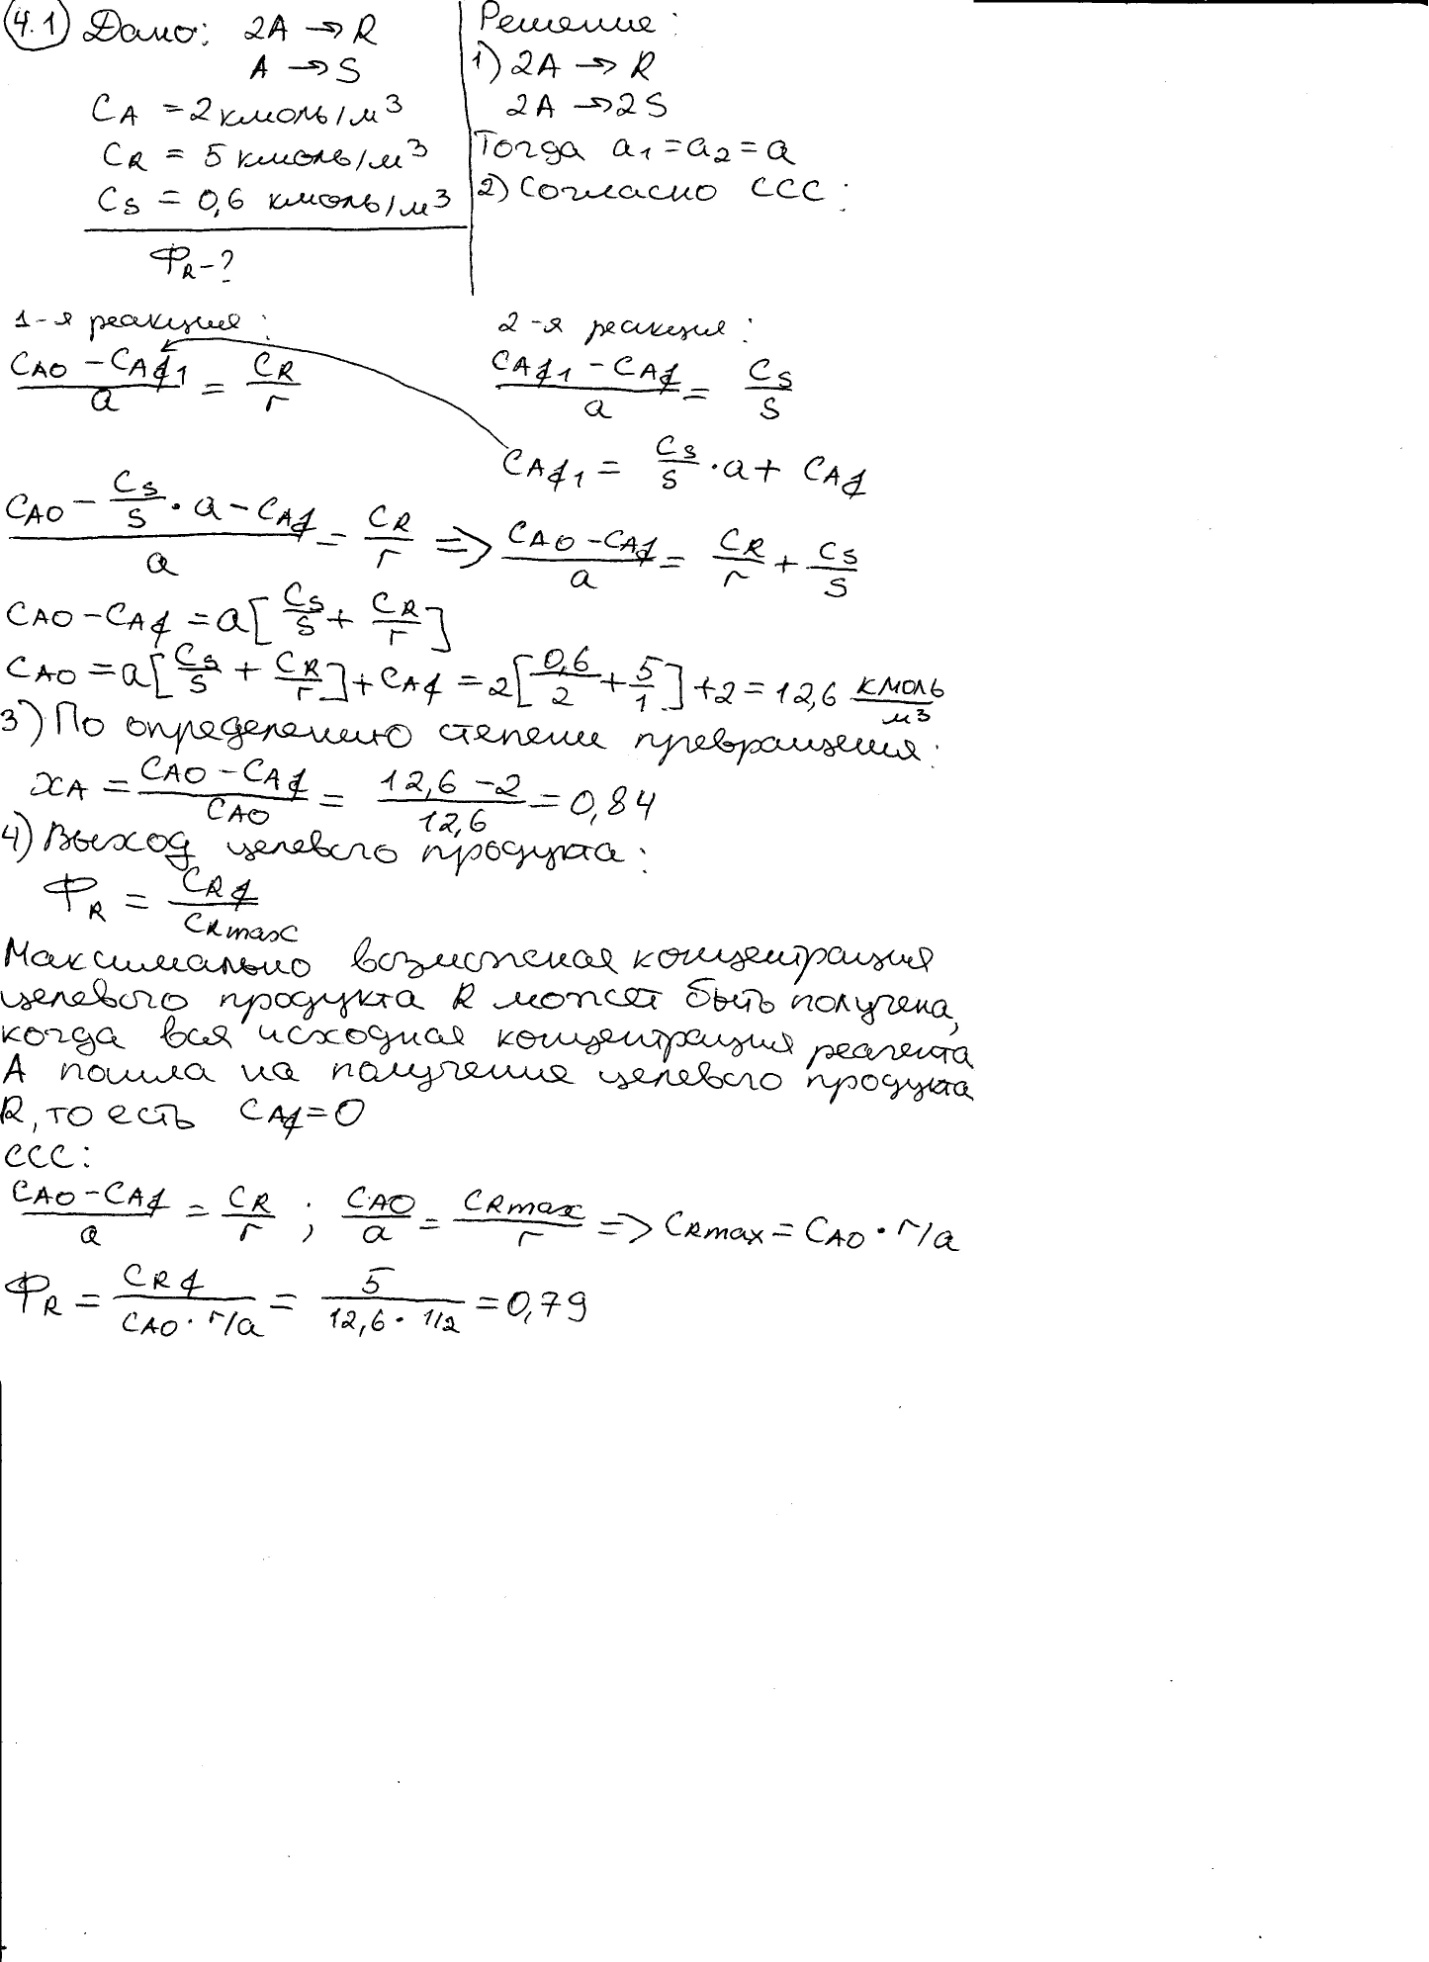 4.1 Дано: 2A → R
A → S
C_A = 2 кмоль/м³
C_R = 5 кмоль/м³
C_S = 0,6 кмоль/м³
Ф_R - ?
Решение:
1) 2A → R
2A → 2S
Тогда a₁ = a₂ = a
2) Согласно ССС:
1-я реакция:
(C_A0 - C_Af1)/a = C_R/r
2-я реакция:
(C_Af1 - C_Af)/a = C_S/s
C_Af1 = C_S/s · a + C_Af
(C_A0 - C_S/s · a - C_Af)/a = C_R/r => (C_A0 - C_Af)/a = C_R/r + C_S/s
C_A0 - C_Af = a[C_S/s + C_R/r]
C_A0 = a[C_S/s + C_R/r] + C_Af = 2[0,6/2 + 5/1] + 2 = 12,6 кмоль/м³
3) По определению степени превращения:
x_A = (C_A0 - C_Af)/C_A0 = (12,6 - 2)/12,6 = 0,84
4) Выход целевого продукта:
Ф_R = C_Rf/C_Rmax
Максимально возможная концентрация
целевого продукта R может быть получена,
когда вся исходная концентрация реагента
А пошла на получение целевого продукта
R, то есть C_Af = 0
ССС:
(C_A0 - C_Af)/a = C_R/r ; C_A0/a = C_Rmax/r => C_Rmax = C_A0 · r/a
Ф_R = C_Rf/(C_A0 · r/a) = 5/(12,6 · 1/2) = 0,79